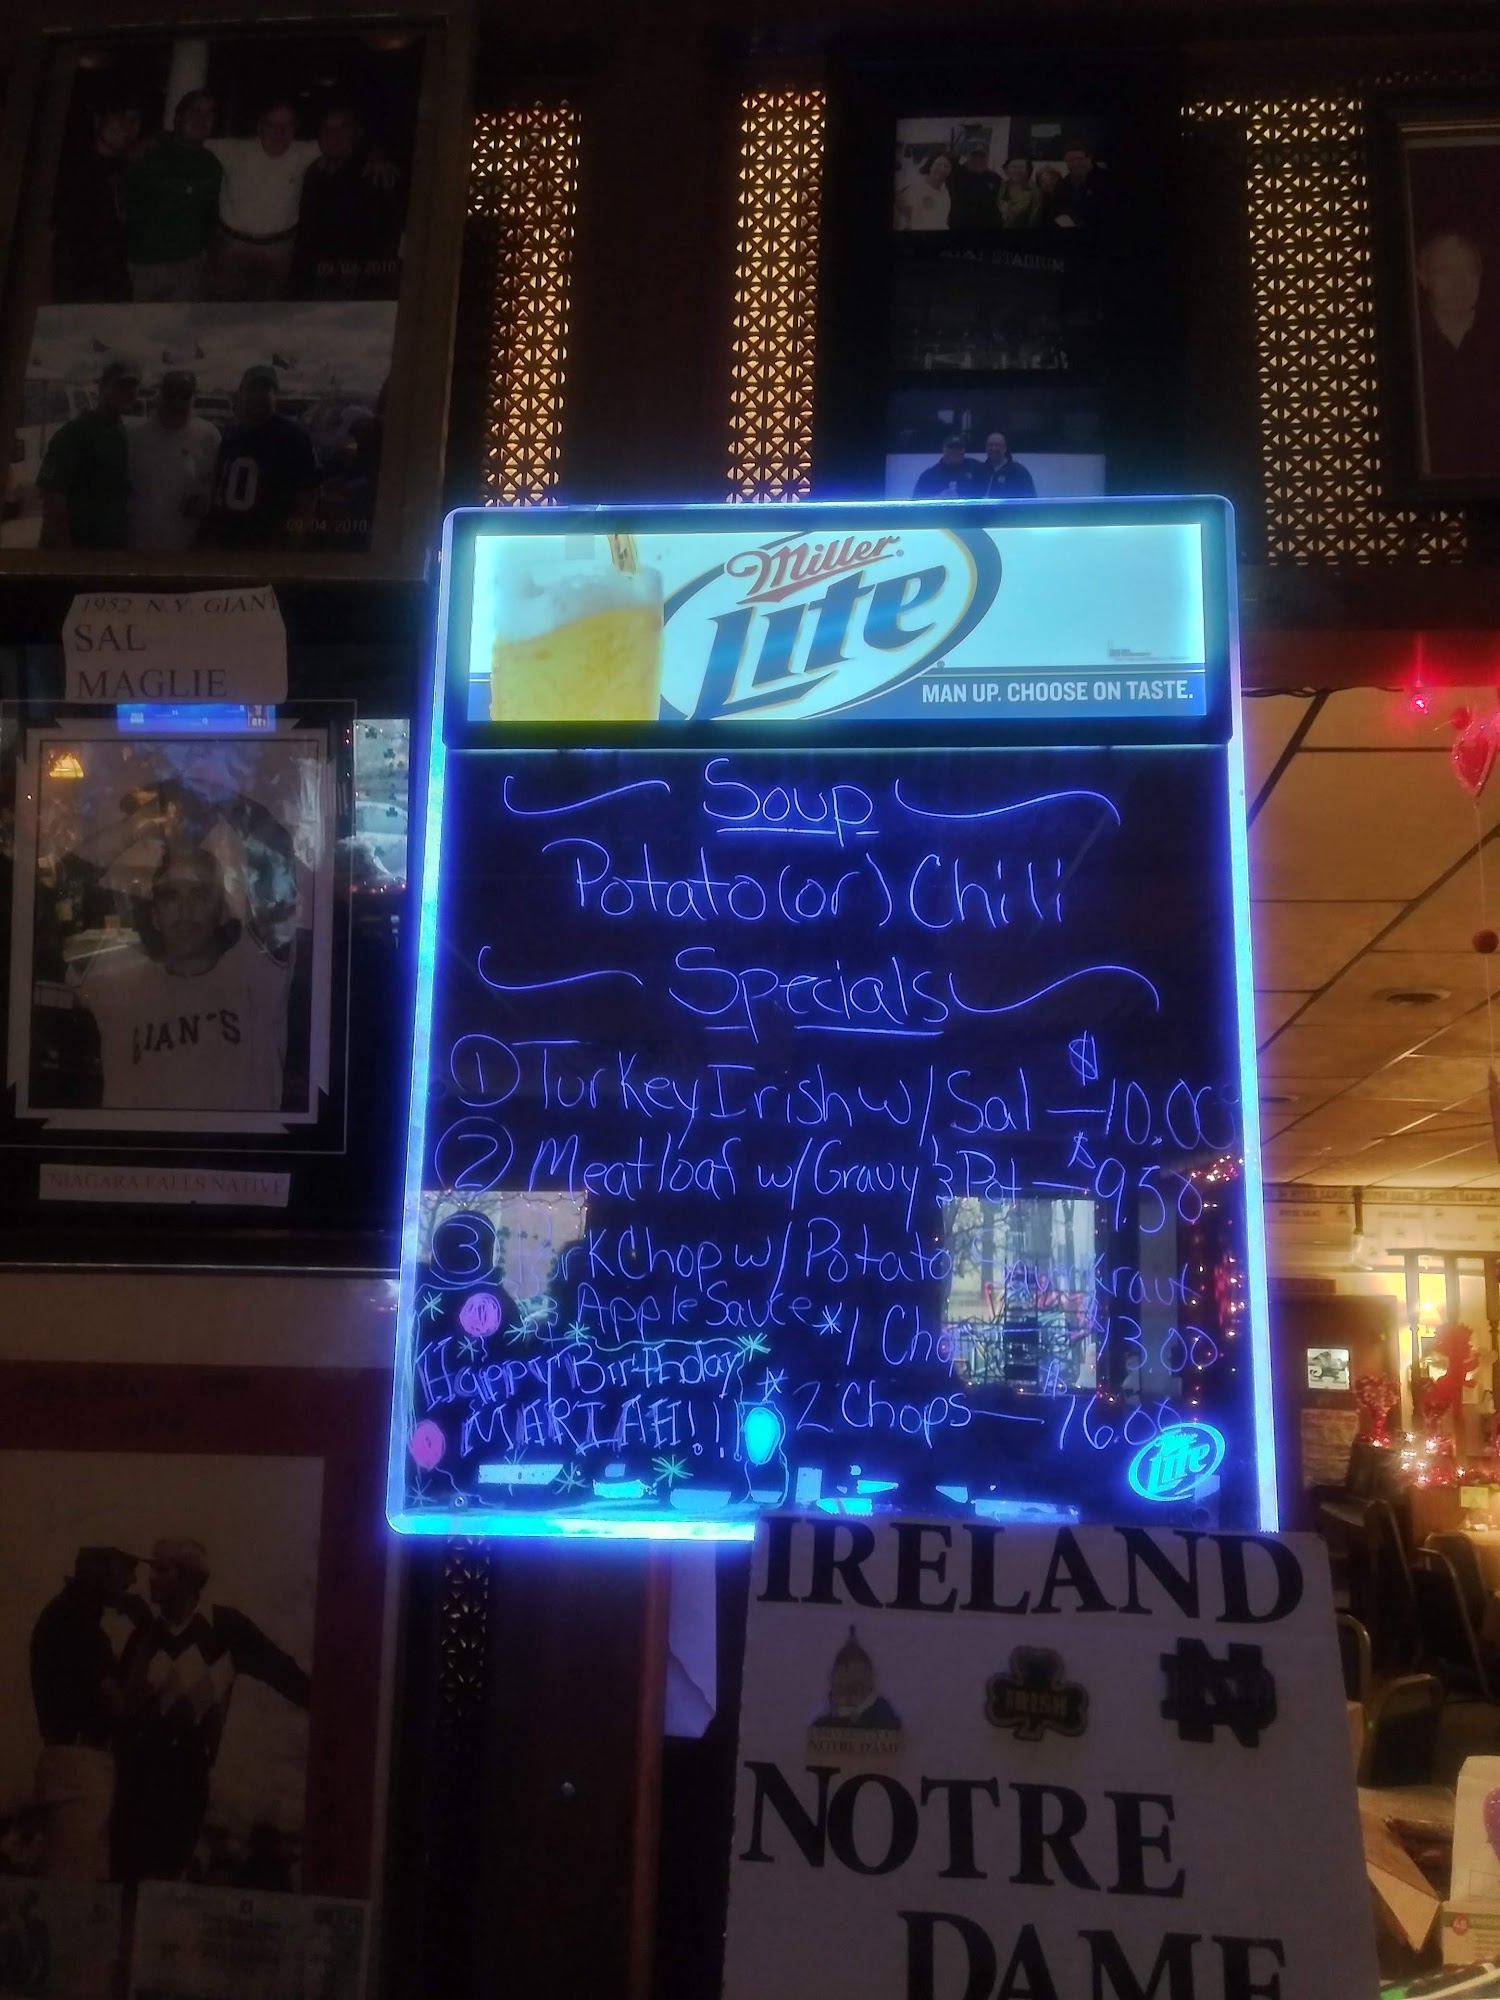 09/03/2010
09/04/2010
STADIUM
10
1952 N.Y. GIANT
SAL
MAGLIE
NIAGARA FALLS NATIVE
Miller
Lite
MAN UP. CHOOSE ON TASTE.
Soup
Potato (or) Chili
Specials
1 Turkey Irish w/ Sal — $10.00
2 Meatloaf w/ Gravy & Pot — $9.50
3 Pork Chop w/ Potato
& Apple Sauce * 1 Chop — $13.00
* 2 Chops — $16.00
Happy Birthday
MARIAH!!
Lite
IRELAND
NOTRE DAME
IRISH
ND
NOTRE
DAME